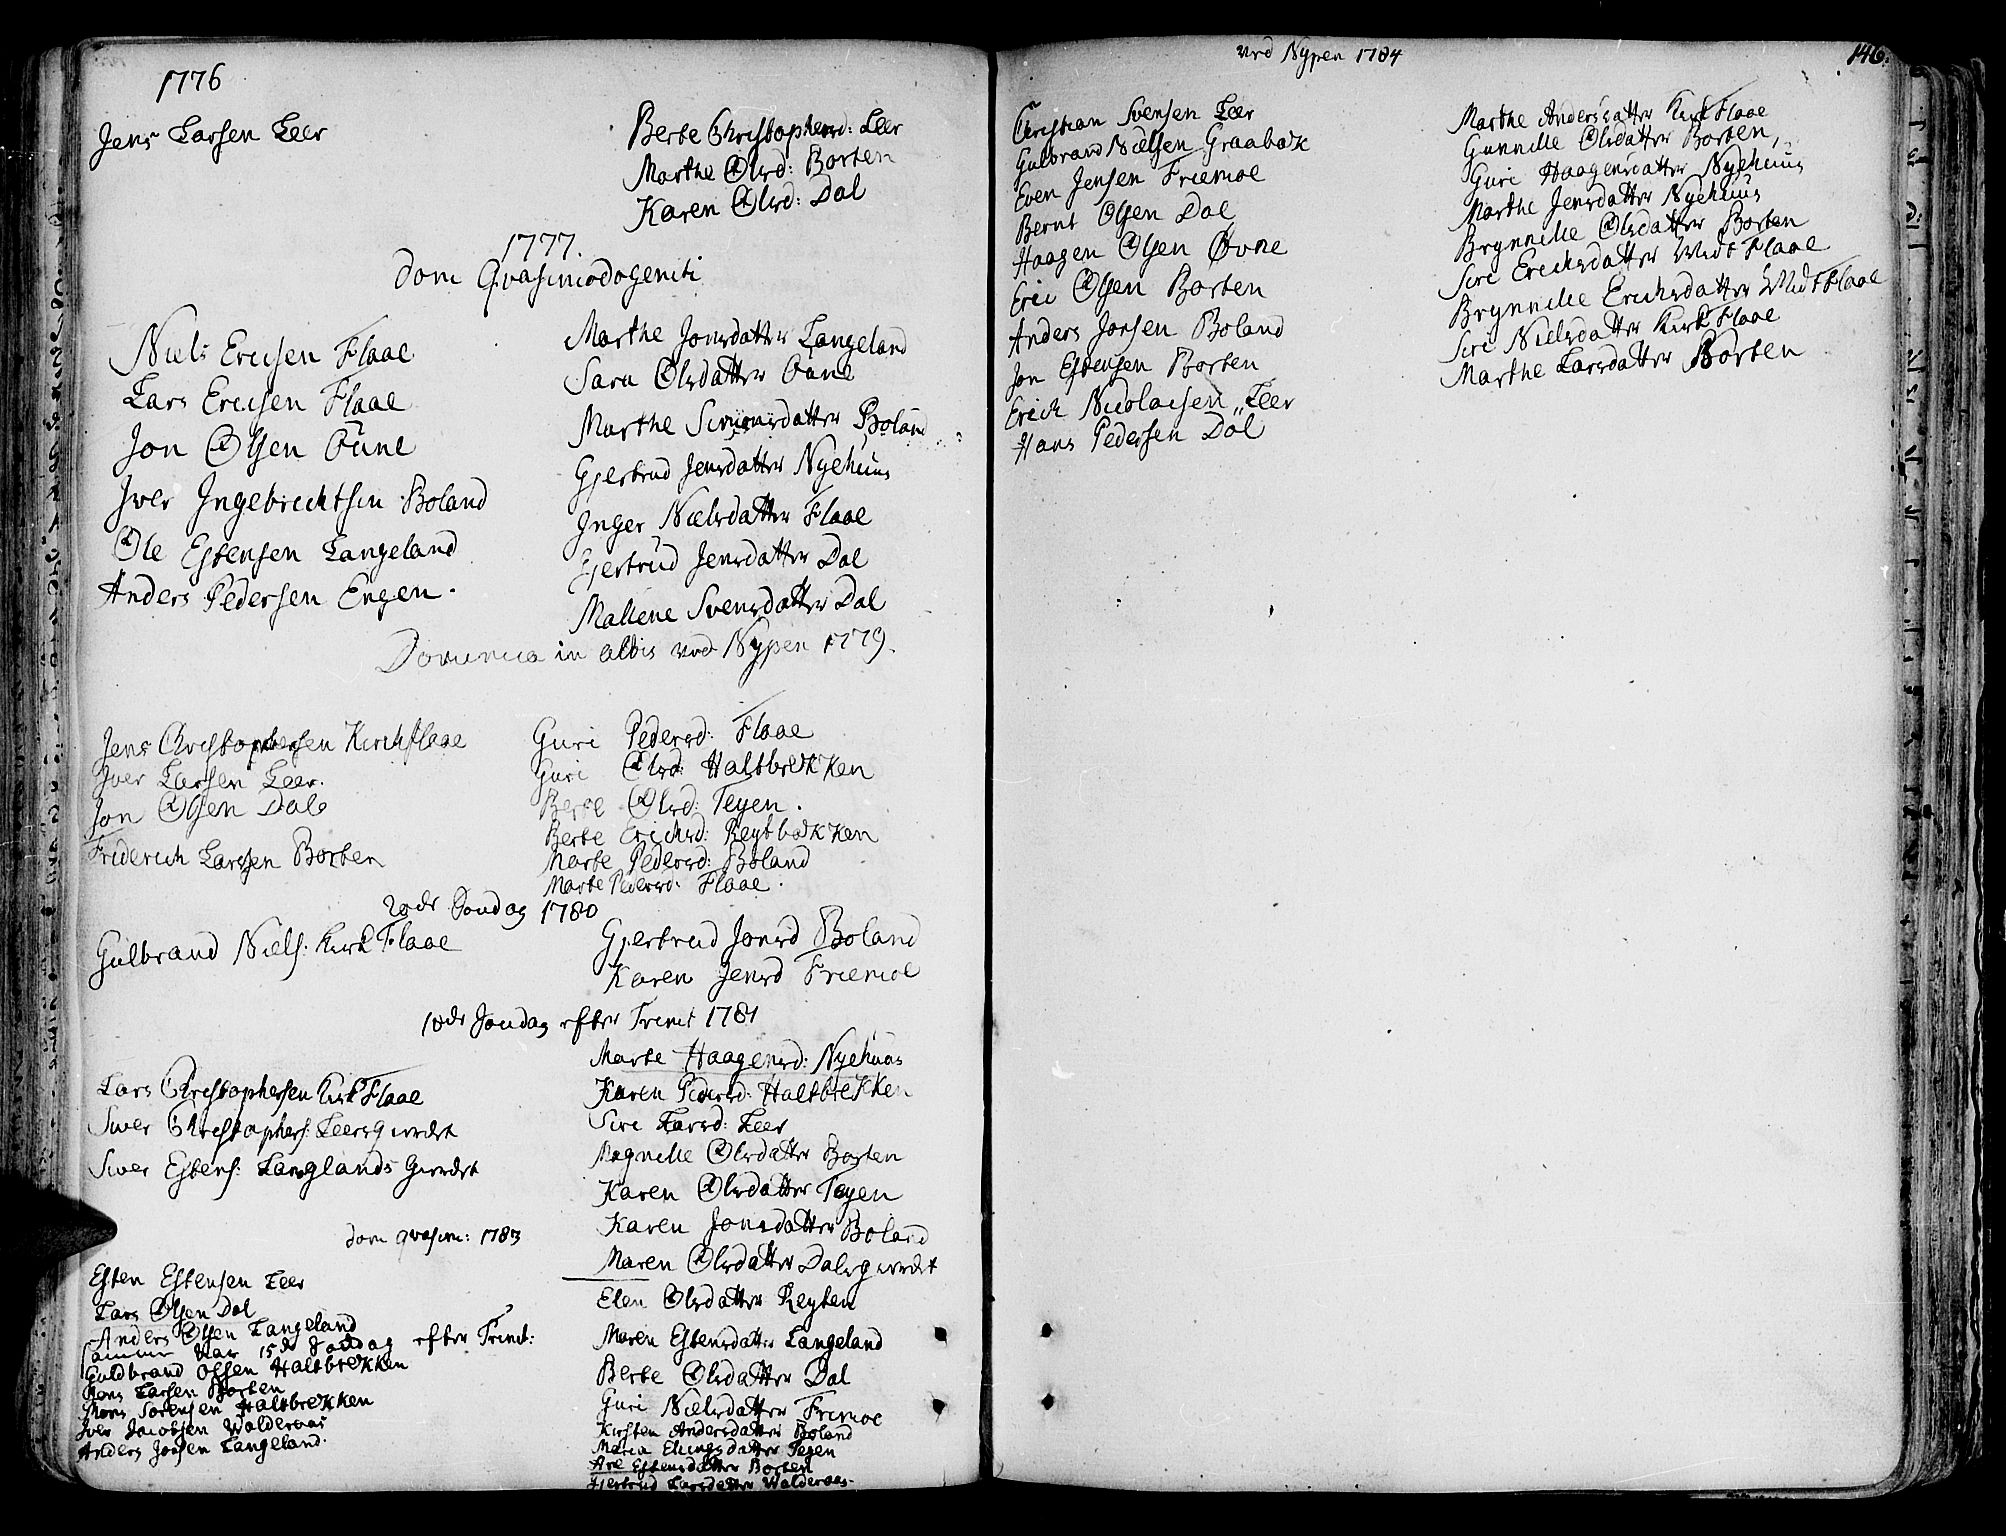 1776
Jens Larsen Leer
Berte Christophersd: Leer
Marthe Olsd: Borten
Karen Olsd: Dal
1777.
Dom Qvasimodogeniti
Niels Ericsen Flaae
Lars Ericsen Flaae
Jon Olsen Øune
Iver Ingebrichtsen Boland
Ole Estensen Langeland
Anders Pedersen Engen.
Marthe Jonsdatter Langeland
Sara Olsdatter Øune
Marthe Simonsdatter Boland
Gjertrud Jensdatter Nyehuus
Inger Nielsdatter Flaae
Gjertrud Jensdatter Dal
Mallene Svensdatter Dal
Dominica in albis ved Nypen 1779.
Jens Christophersen Kirchflaae
Iver Larsen Leer.
Jon Olsen Dal
Friderich Larssen Borten
Guri Pedersd: Flaae
Guri Olsd: Haltbrekken
Berte Olsd: Teyen.
Berte Erichsd: Reytbækken
Marte Pedersd: Boland
Marte Pedersd: Flaae.
20de Søndag 1780
Gulbrand Niels: Kirk Flaae
Gjertrud Jonsd Boland
Karen Jensd Friemoe
18de Søndag efter Trinit 1781
Lars Christophersen Kirk Flaae
Siver Christophers: Leersgierdet
Siver Estens: Langlands Gierdet
Marte Haagensd: Nyehuus
Karen Pedersd: Haltbrekken
Siri Larsd: Leer
Magnille Olsdatter Borten
Karen Olsdatter Teyen
Karen Jonsdatter Boland
Maren Olsdatter Dalsgierdet
Dom qvasim: 1783
Esten Estensen Leer
Lars Olsen Dal
Anders Olsen Langeland
Samme Aar 15de Søndag efter Trinit:
Guldbrand Olsen Haltbrekken
Mons Larsen Borten
Mons Sørensen Haltbrekken
Iver Jacobsen Walderaas
Anders Jonsen Langeland.
Elen Olsdatter Reyten
Maren Estensdatter Langeland
Berte Olsdatter Dal
Guri Nielsdatter Friemoe
Kirsten Andersdatter Boland
Maria Ellingsdatter Teyen
Are Estensdatter Borten
Gjertrud Larsdatter Walderaas.
ved Nypen 1784
146.
Christian Svensen Leer
Gulbrand Nielsen Graabæk
Even Jensen Friemoe
Bernt Olsen Dal
Haagen Olsen Øvne
Eric Olsen Borten
Anders Jonsen Boland
Jon Estensen Borten
Erich Nicolaisen Leer
Hans Pedersen Dal
Marthe Andersdatter Kirk Flaae
Gunnille Olsdatter Borten,
Guri Haagensdatter Nyehuus
Marthe Jensdatter Nyehuus
Brynnille Olsdatter Borten
Siri Erichsdatter Midt Flaae
Brynnille Erichsdatter Midt Flaae
Siri Nielsdatter Kirk Flaae
Marthe Larsdatter Borten